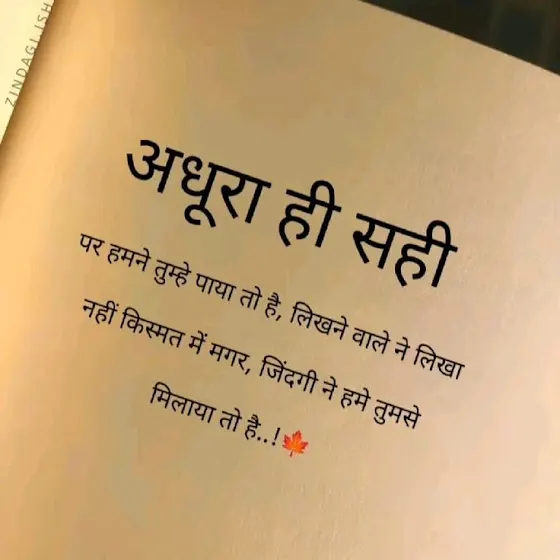 ZINDAGI.ISH
अधूरा ही सही
पर हमने तुम्हे पाया तो है, लिखने वाले ने लिखा
नहीं किस्मत में मगर, जिंदगी ने हमे तुमसे
मिलाया तो है..!🍁